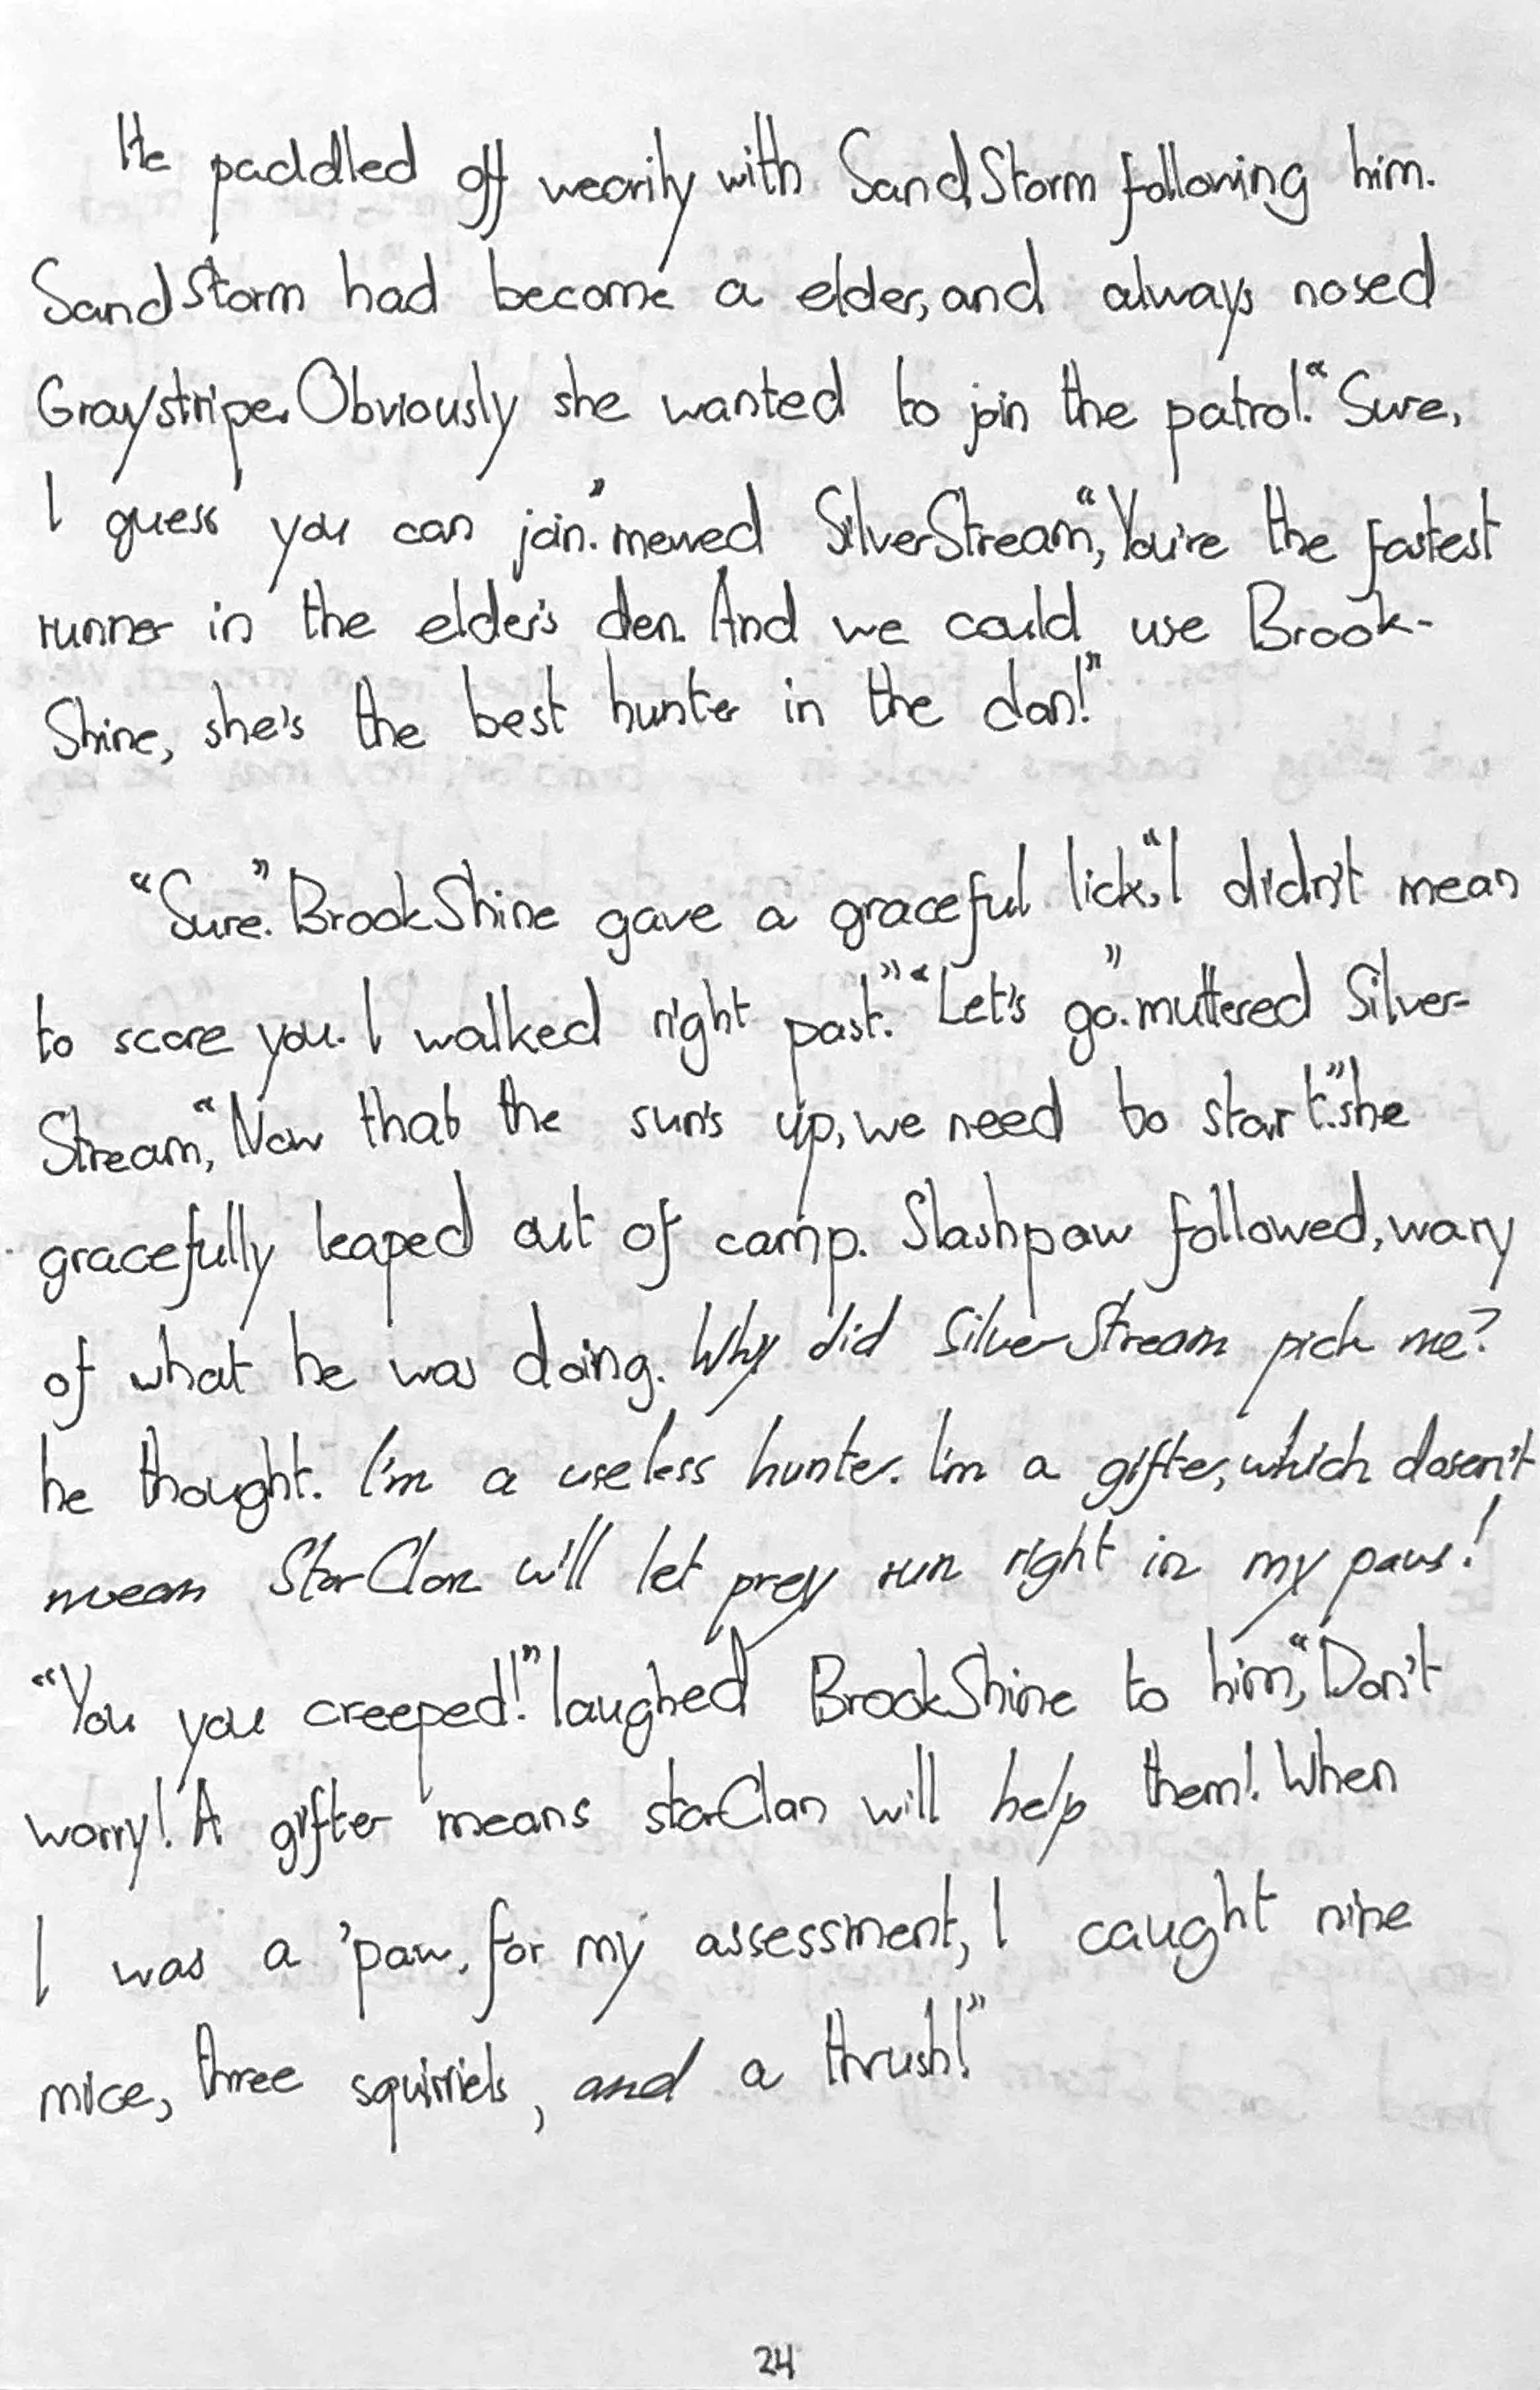 He paddled off wearily with SandStorm following him.
SandStorm had become a elder, and always nosed
Graystripe. Obviously she wanted to join the patrol. “Sure,
I guess you can join.” mewed SilverStream, “You're the fastest
runner in the elder's den. And we could use Brook-
Shine, she's the best hunter in the clan!”
“Sure.” BrookShine gave a graceful lick, “I didn't mean
to scare you. I walked right past.” “Let's go.” muttered Silver-
Stream, “Now that the sun's up, we need to start.” she
gracefully leaped out of camp. Slashpaw followed, wary
of what he was doing. Why did SilverStream pick me?
he thought. I'm a useless hunter. I'm a gifter, which dosen't
mean StarClan will let prey run right in my paws!
“You you creeped!” laughed BrookShine to him, “Don't
worry! A gifter means starClan will help them! When
I was a 'paw, for my assessment, I caught nine
mice, three squirriels, and a thrush!”
24